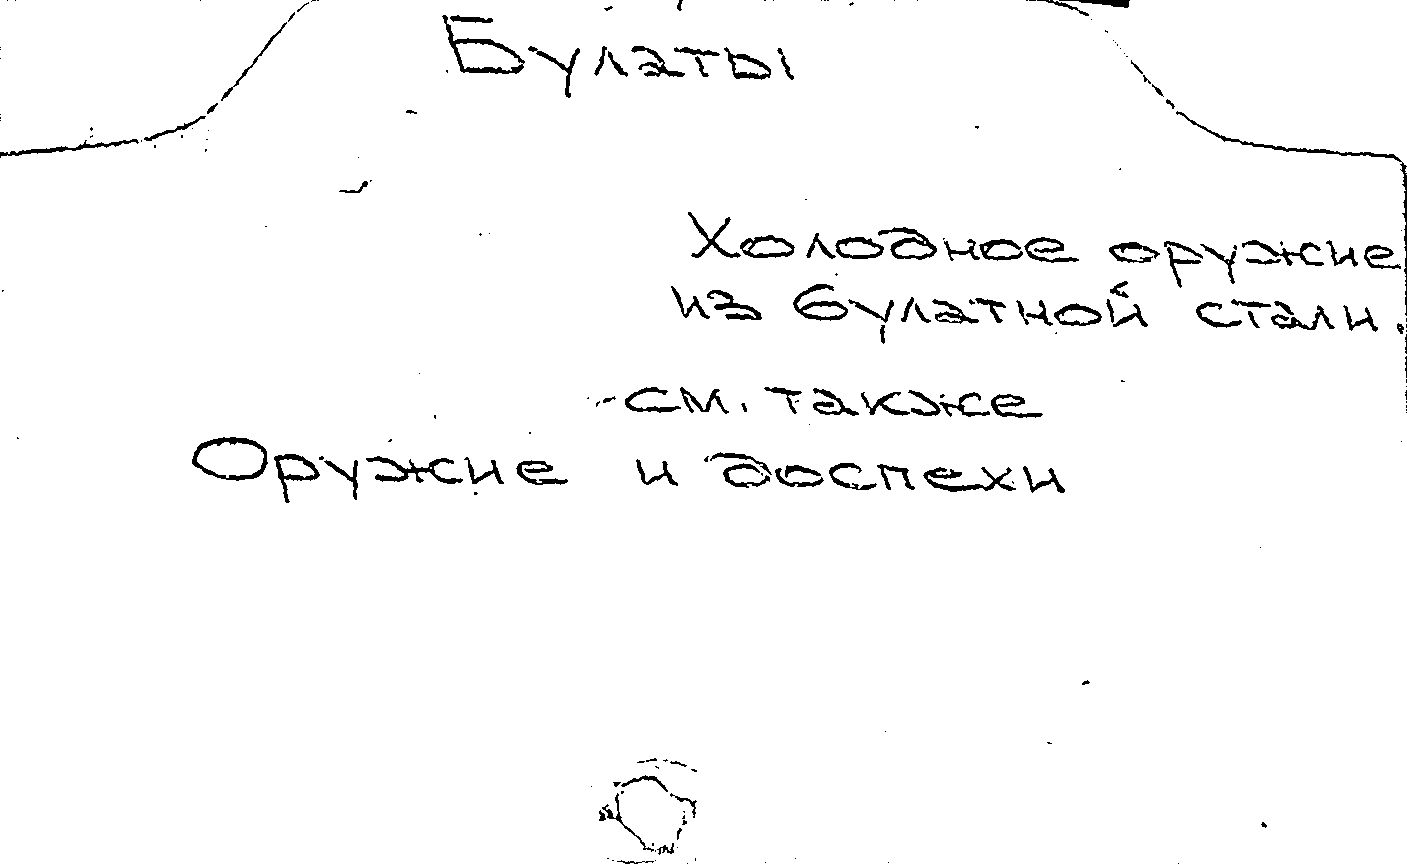 Булаты
Холодное оружие
из булатной стали.
см. также
Оружие и доспехи